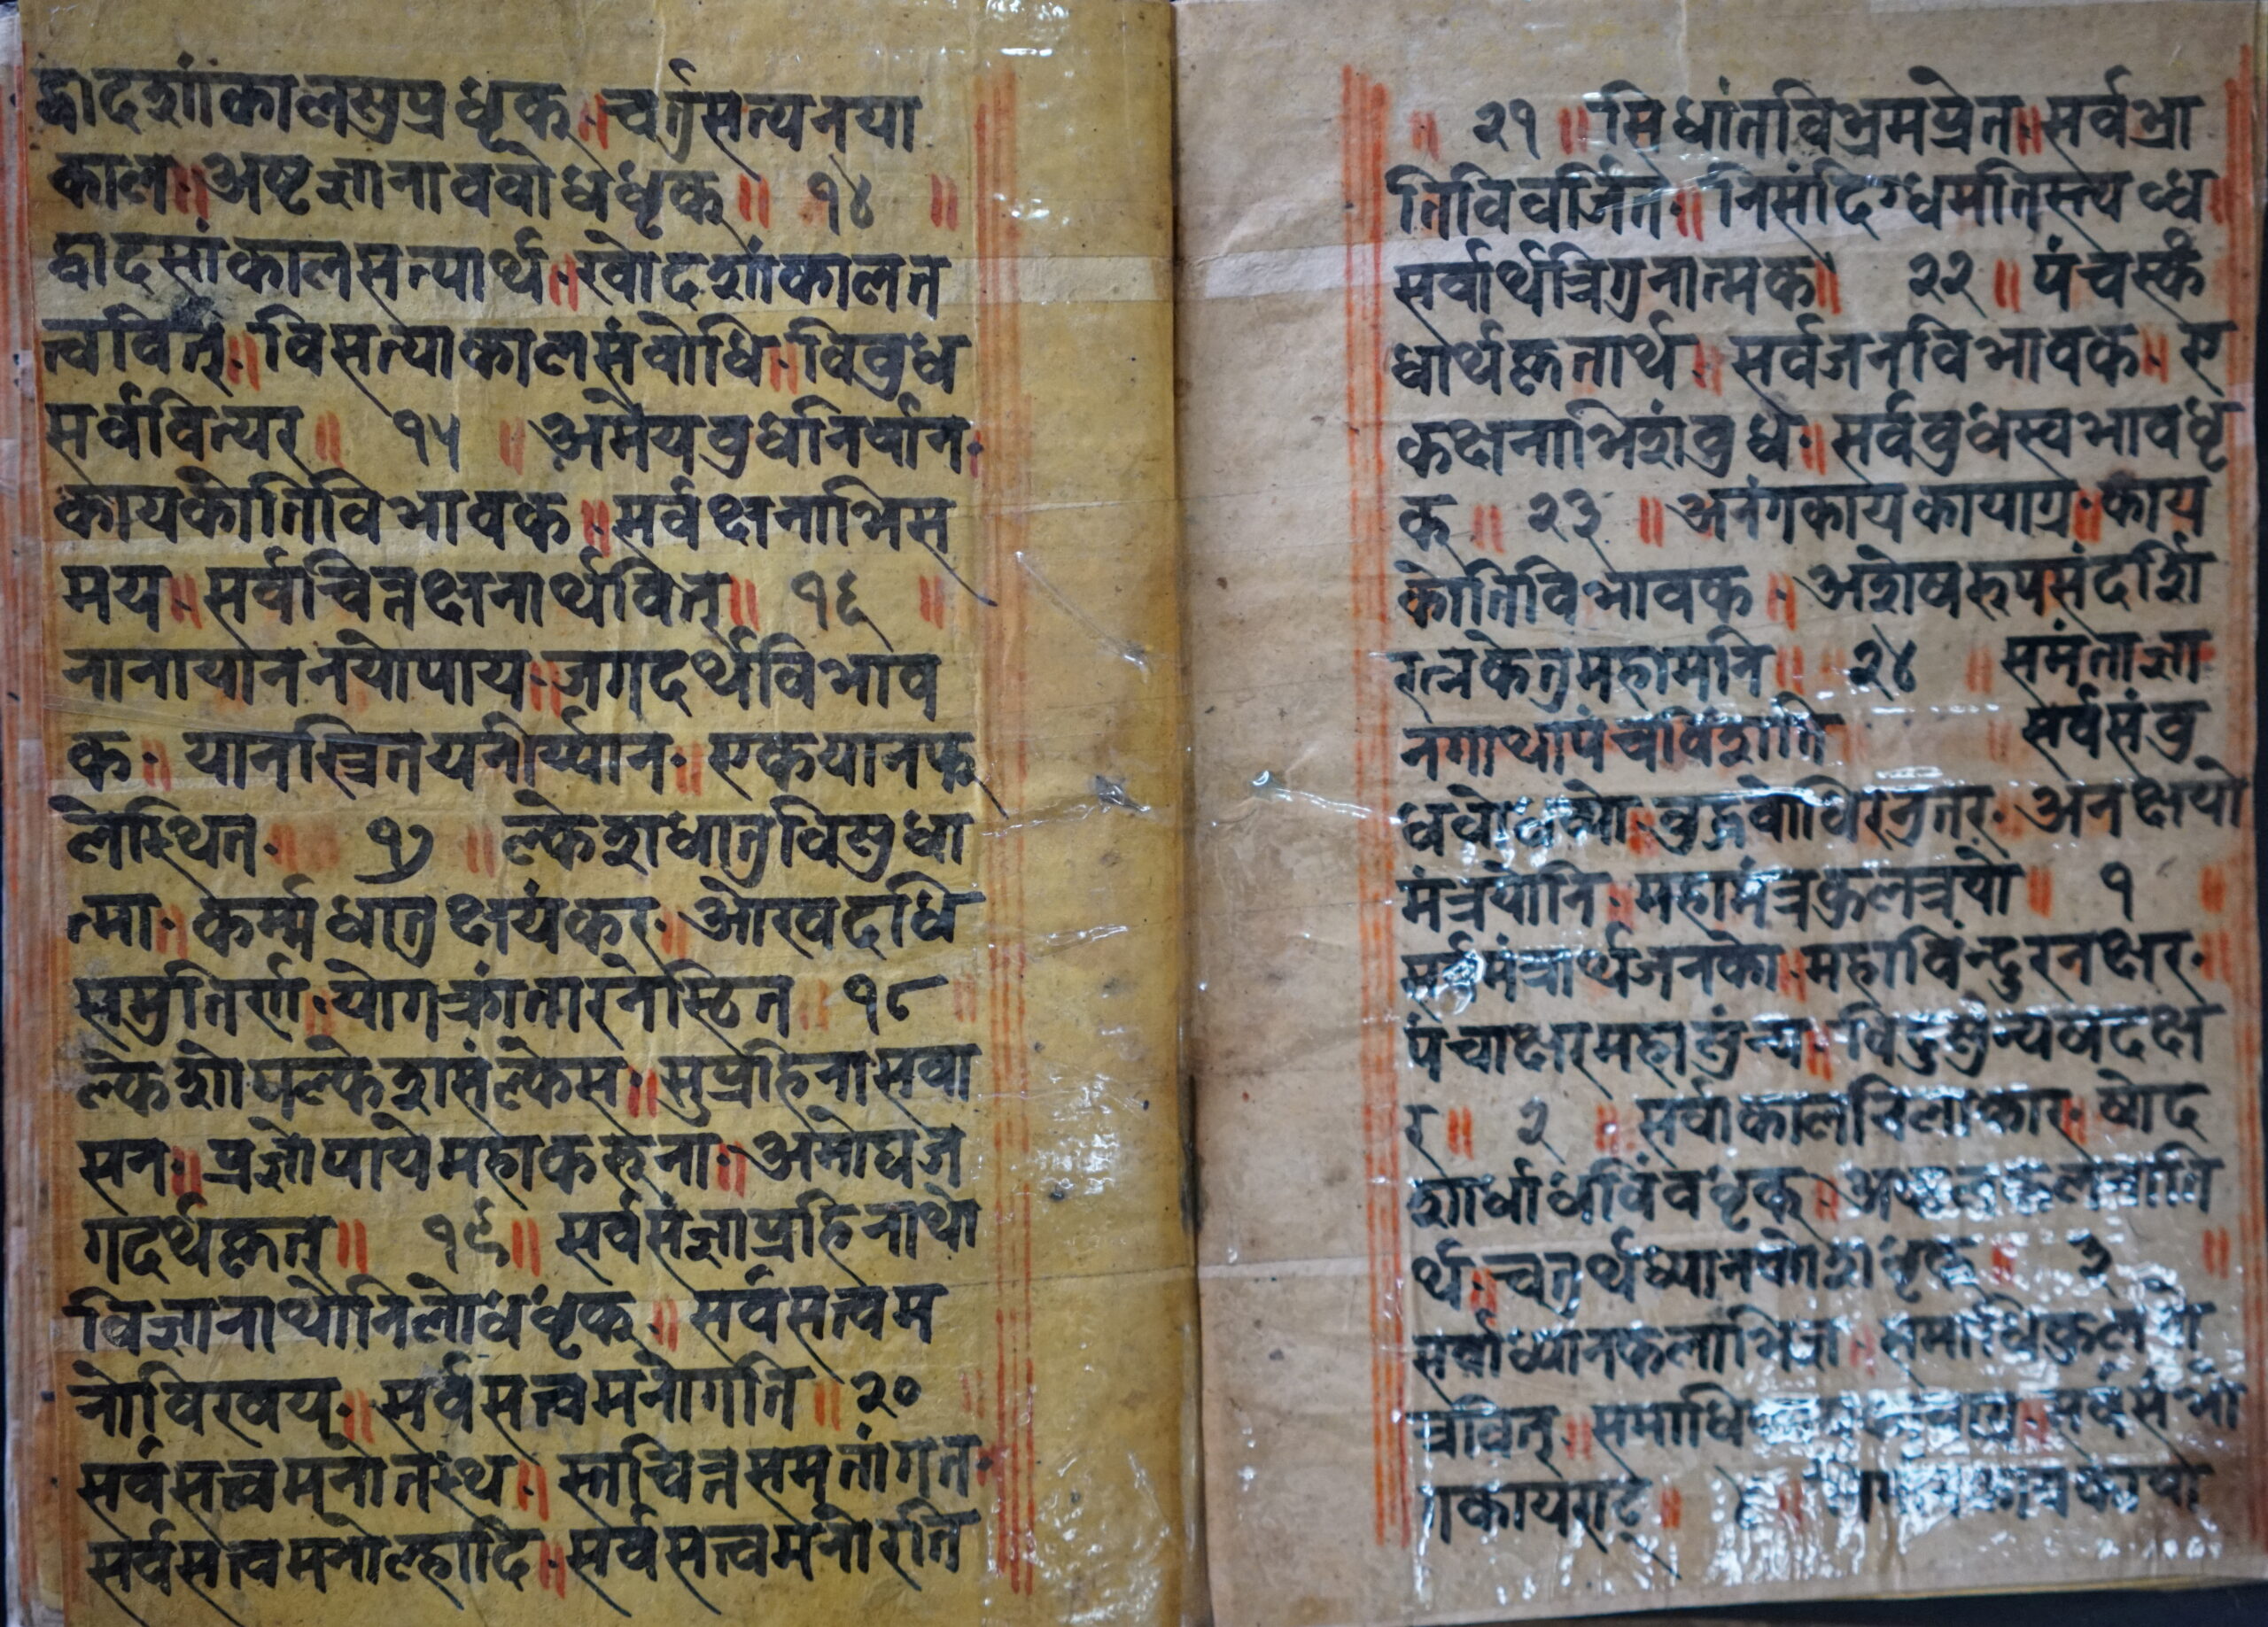 द्वादशांकालसुप्रधृक॥ चर्तुसत्यनया
काल॥ अष्टज्ञानाववोधधृक्॥ १४ ॥
द्वादसांकालसत्यार्थ॥ खोदशांकालत
त्ववित्॥ विसत्याकालसंवोधि॥ विवुध
सर्ववित्यर॥ १५ ॥ अमेयवुधनिर्वान
कायकोतिविभावक॥ सर्वक्षनाभिस
मय॥ सर्वचित्तक्षनार्थवित्॥ १६ ॥
नानायाननयोपाय॥ जगदर्थविभाव
क॥ यानस्त्रितयनीर्य्यान॥ एकयानफ
लेस्थित॥ १७ ॥ ल्केशधातुविसुधा
त्मा॥ कर्म्मधातुक्षयंकर॥ ओरवदधि
समुतिर्ण॥ योगक्रांतारनेस्ठित १८ ॥
ल्केशोपल्केशसंल्केस॥ सुप्रहिनासवा
सन॥ प्रज्ञोपायेमहाकरूना॥ अमोघज
गदर्थकृत्॥ १९ ॥ सर्वसंज्ञाप्रहिनार्थो
विज्ञानार्थोनिलोधधृक्॥ सर्वसत्त्वम
नोविखय॥ सर्वसत्त्वमनोगति॥ २०
सर्वसत्त्वमनोतस्थ॥ स्तचित्तसमतांगत
सर्वसत्त्वमनोल्हादि॥ सर्वसत्त्वमनोरति
॥ २१ ॥ सिधांतविभ्रमप्रेत॥ सर्वभ्रा
तिविवर्जित॥ निसंदिग्धमतिस्त्यध्व॥
सर्वार्थत्रिगुनात्मक॥ २२ ॥ पंचस्कं
धार्थकृतार्थ॥ सर्वजनविभावक॥ ए
कक्षनाभिशंवुध॥ सर्ववुधस्वभावधृ
क्॥ २३ ॥ अनंगकायकायाग्र॥ काय
कोतिविभावक॥ अशेषरूपसंदर्शि
रत्नकेतुमहामनि॥ २४ ॥ समंताज्ञा
नगाथापंचविंशति ॥ सर्वसंवु
अनक्षयो
मंत्रयोनि॥ महामंत्रकुलत्रयो॥ १ ॥
सर्वमंत्रार्थजनको॥ महाविंन्दुरनक्षर॥
पंचाक्षरमहासुंन्य॥
र॥ २ ॥ सर्वाकाल षोद
शार्धार्धविंवधृक्॥
र्थ॥ चतुर्थध्यान ३ ॥
सर्वाध्यानकलाभि समाधिकुल
त्रवित्॥ समाधि
गकायराट्॥